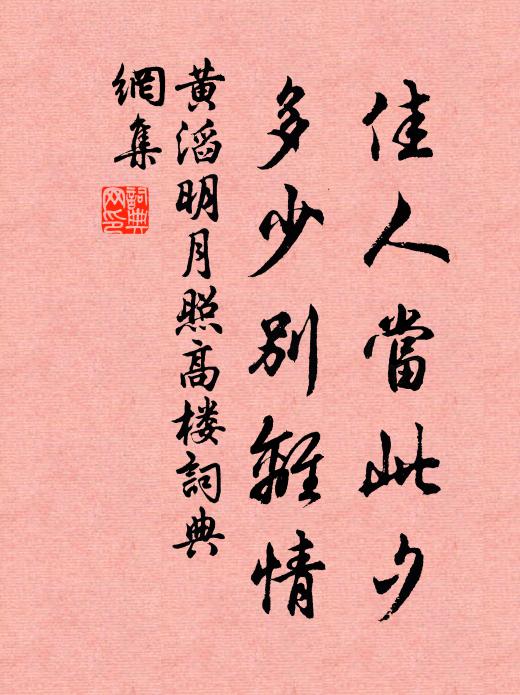 佳人當此夕
多少別離情
黃滔明月照高楼詞典
網集
詞典
网印